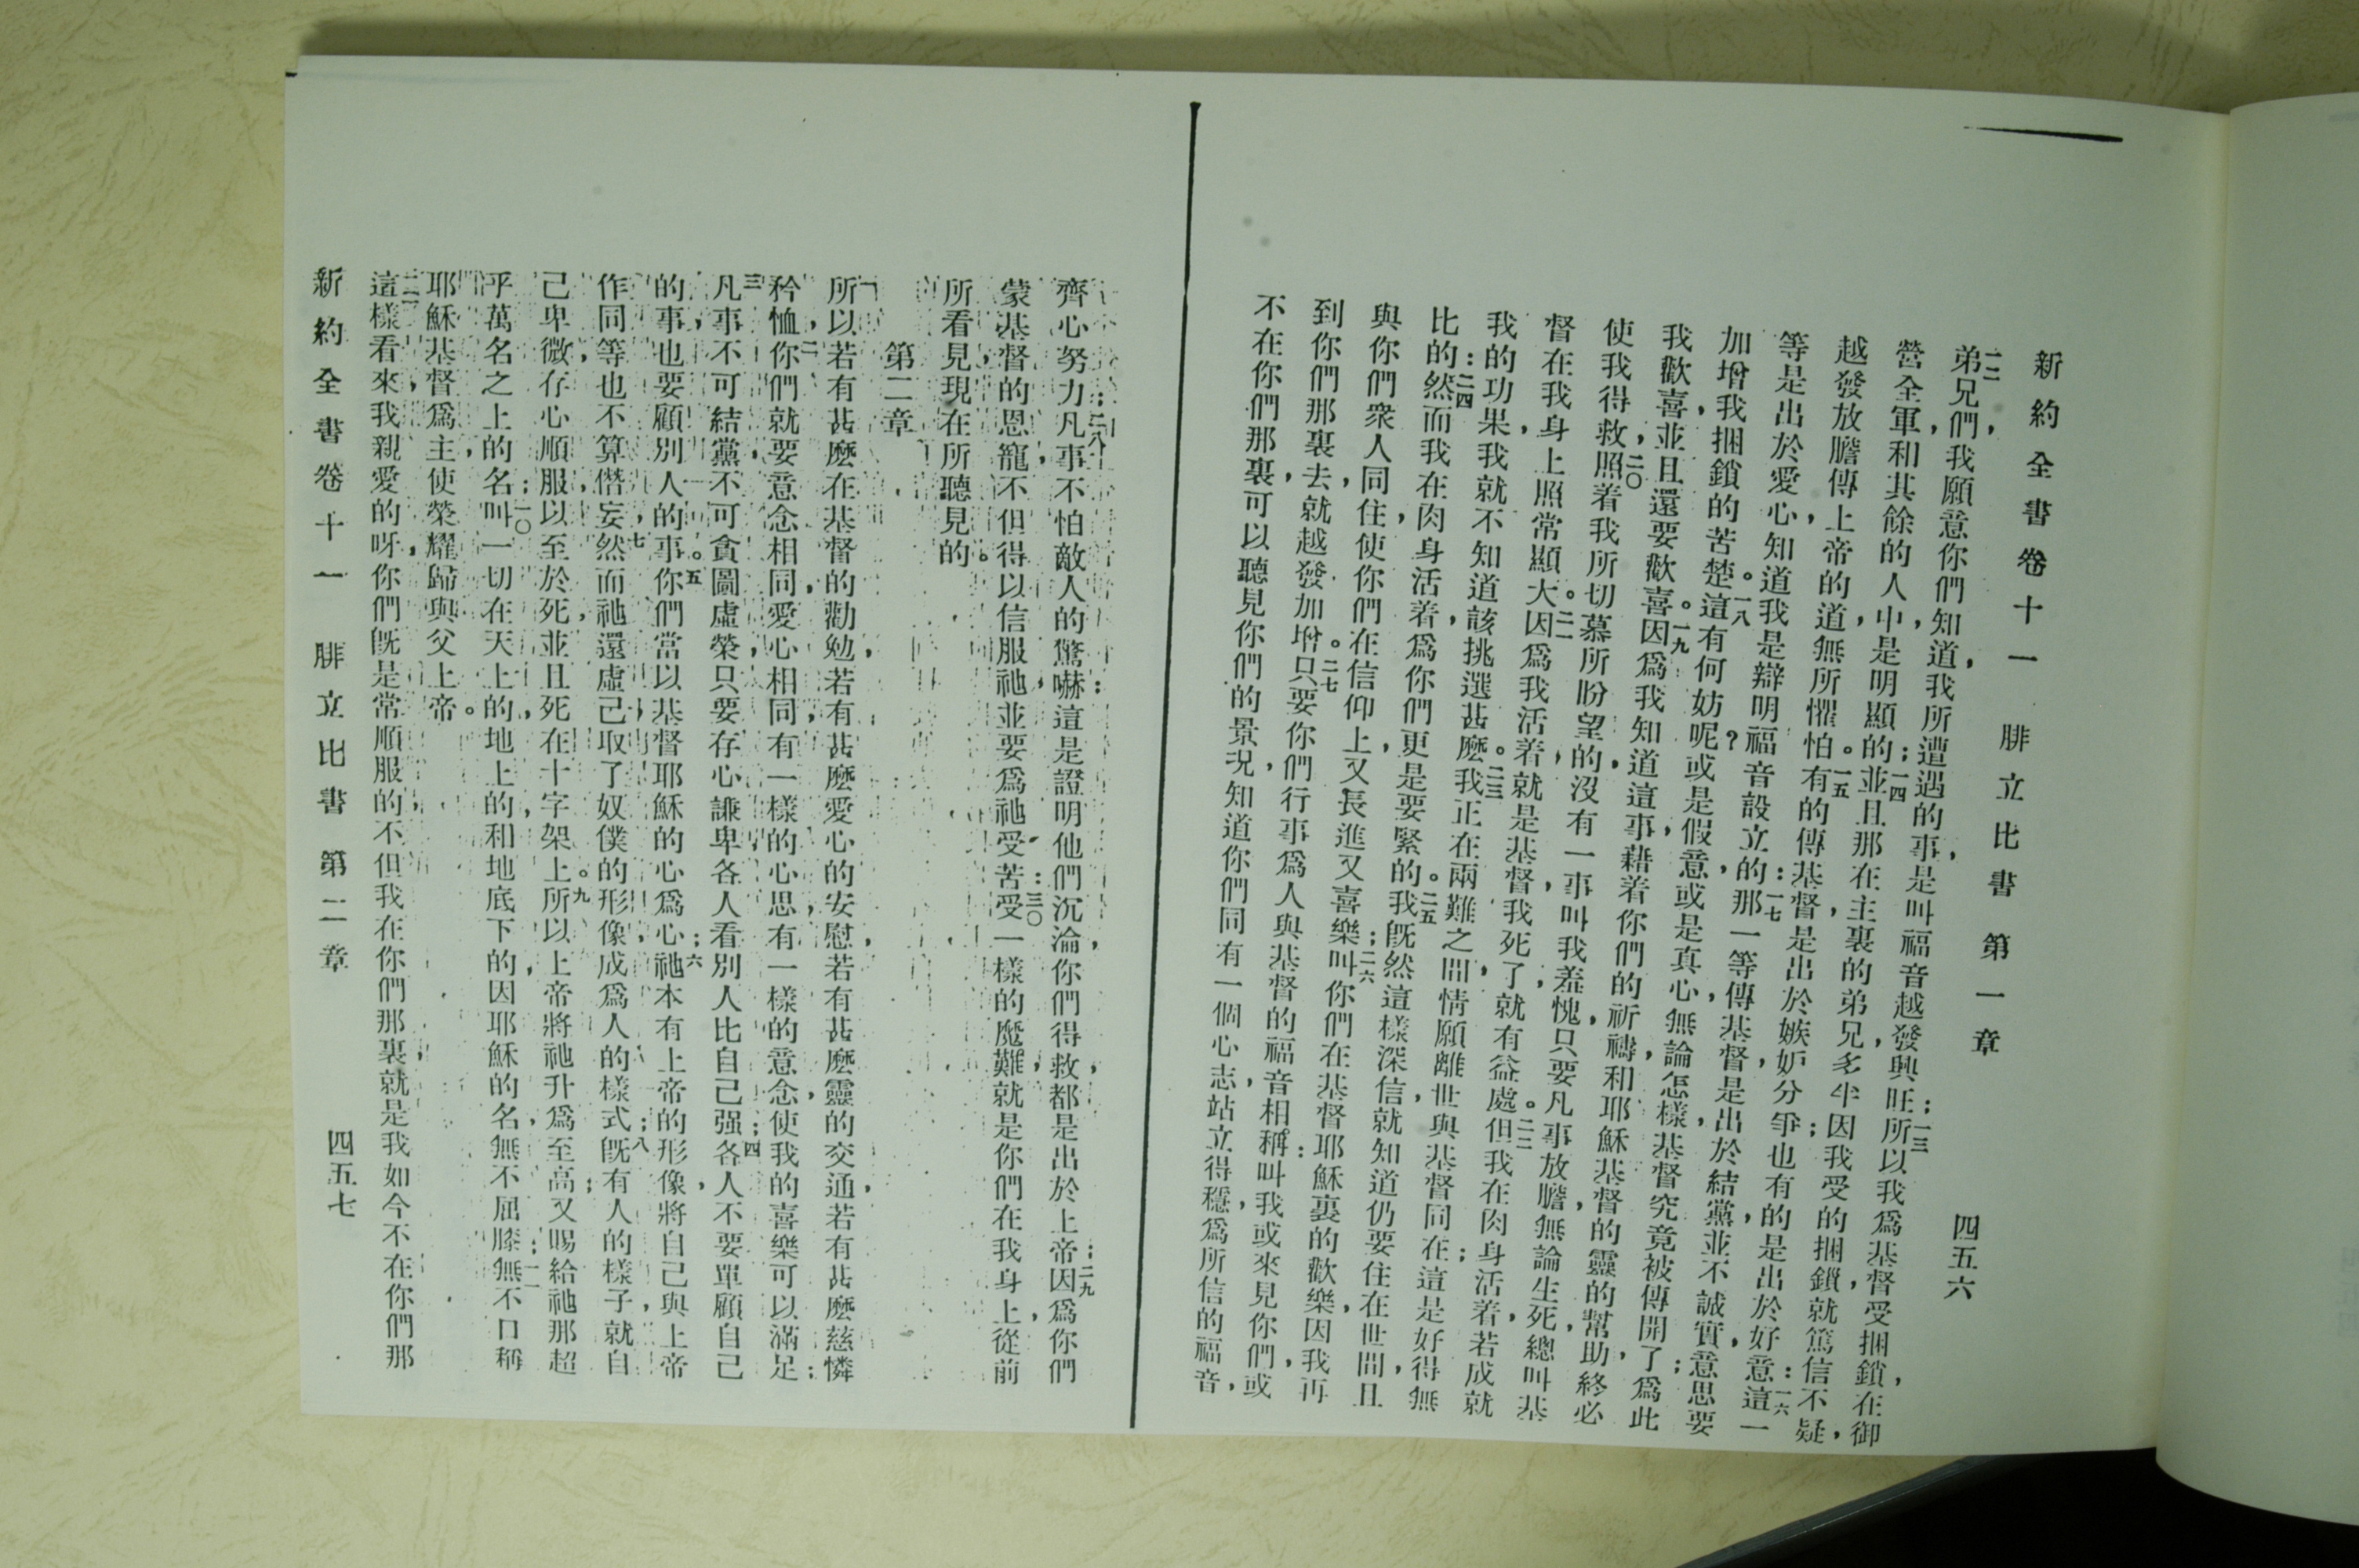 新約全書卷十一 腓立比書 第一章 四五六
一二弟兄們，我願意你們知道，我所遭遇的事，是叫福音越發興旺；一三所以我爲基督受捆鎖，在御
營全軍，和其餘的人中，是明顯的；一四並且那在主裏的弟兄，多半因我受的捆鎖，就篤信不疑，
越發放膽傳上帝的道，無所懼怕。一五有的傳基督，是出於嫉妒分爭；也有的是出於好意：一六這一
等是出於愛心，知道我是辯明福音設立的：一七那一等傳基督，是出於結黨，並不誠實，意思要
加增我捆鎖的苦楚。一八這有何妨呢？或是假意，或是真心，無論怎樣，基督究竟被傳開了；爲此
我歡喜，並且還要歡喜。一九因爲我知道這事藉着你們的祈禱，和耶穌基督的靈的幫助，終必
使我得救，二〇照着我所切慕所盼望的，沒有一事叫我羞愧，只要凡事放膽，無論生，死，總叫基
督在我身上照常顯大。二一因爲我活着，就是基督，我死了，就有益處。二二但我在肉身活着，若成就
我的功果，我就不知道該挑選甚麼。二三我正在兩難之間，情願離世，與基督同在；這是好得無
比的：二四然而我在肉身活着，爲你們更是要緊的。二五我既然這樣深信，就知道仍要住在世間，且
與你們衆人同住，使你們在信仰上，又長進又喜樂；二六叫你們在基督耶穌裏的歡樂，因我再
到你們那裏去，就越發加增。二七只要你們行事爲人，與基督的福音相稱：叫我或來見你們，或
不在你們那裏，可以聽見你們的景況，知道你們同有一個心志，站立得穩，爲所信的福音，
齊心努力：二八凡事不怕敵人的驚嚇：這是證明他們沉淪，你們得救，都是出於上帝：二九因爲你們
蒙基督的恩寵，不但得以信服祂，並要爲祂受苦：三〇受一樣的魔難，就是你們在我身上從前
所看見，現在所聽見的。
第二章
一所以若有甚麼在基督的勸勉，若有甚麼愛心的安慰，若有甚麼靈的交通，若有甚麼慈憐
矜恤，二你們就要意念相同，愛心相同，有一樣的心思，有一樣的意念，使我的喜樂可以滿足；
三凡事不可結黨，不可貪圖虛榮，只要存心謙卑，各人看別人比自己强；四各人不要單顧自己
的事，也要顧別人的事。五你們當以基督耶穌的心爲心；六祂本有上帝的形像，將自己與上帝
作同等，也不算僭妄，七然而祂還虛己，取了奴僕的形像，成爲人的樣式；八既有人的樣子，就自
己卑微，存心順服，以至於死，並且死在十字架上。九所以上帝將祂升爲至高，又賜給祂那超
乎萬名之上的名；一〇叫一切在天上的，地上的，和地底下的，因耶穌的名，無不屈膝；一一無不口稱
耶穌基督爲主，使榮耀歸與父上帝。
一二這樣看來，我親愛的呀，你們既是常順服的，不但我在你們那裏，就是我如今不在你們那
新約全書卷十一 腓立比書 第二章 四五七